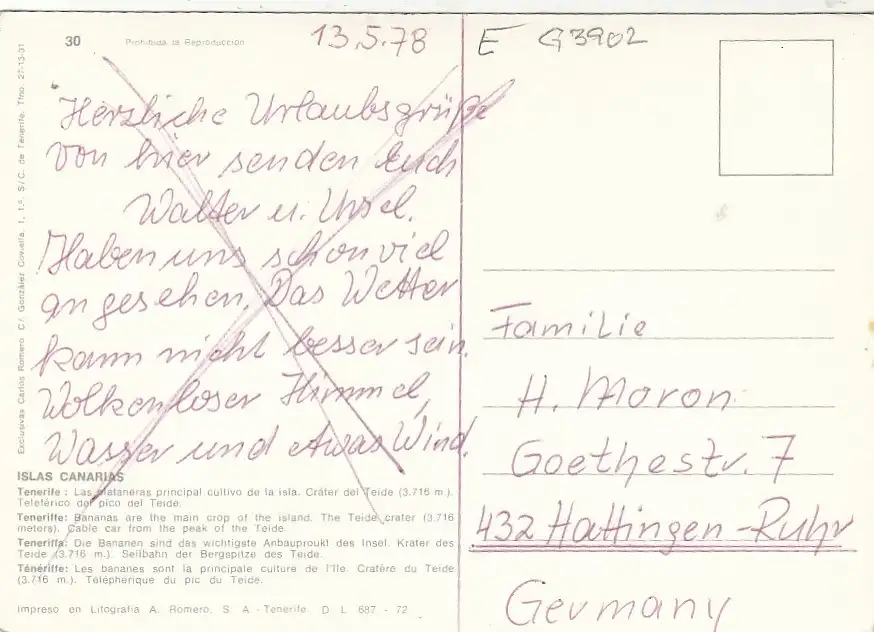 30
Prohibida la Reproducción
13.5.78
E G3902
Herzliche Urlaubsgrüße
von hier senden Euch
Walter u. Ursel.
Haben uns schon viel
angesehen. Das Wetter
kann nicht besser sein.
Wolkenloser Himmel,
Wasser und etwas Wind.
Familie
H. Moron
Goethestr. 7
432 Hattingen-Ruhr
Germany
ISLAS CANARIAS
Tenerife: Las plataneras principal cultivo de la isla. Cráter del Teide (3.716 m.).
Teleférico del pico del Teide.
Teneriffe: Bananas are the main crop of the island. The Teide crater (3.716
meters). Cable car from the peak of the Teide.
Teneriffa: Die Bananen sind das wichtigste Anbauproukt des Insel. Krater des
Teide (3.716 m.). Seilbahn der Bergspitze des Teide.
Ténériffe: Les bananes sont la principale culture de l'Ile. Cratère du Teide
(3.716 m.). Télépherique du pic du Teide.
Impreso en Litografía A. Romero, S. A - Tenerife. D L 687 - 72
Exclusivas Carlos Romero C/. González Coviella, 1, 1.º S/C. de Tenerife. Tfno. 27-15-31